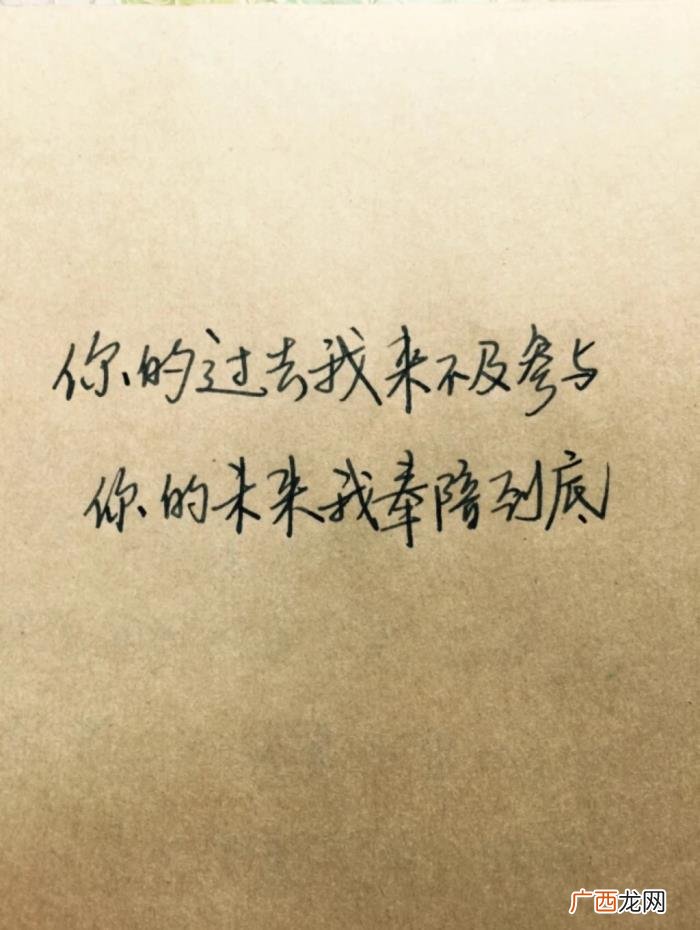 你的过去我来不及参与
你的未来我奉陪到底
广西龙网